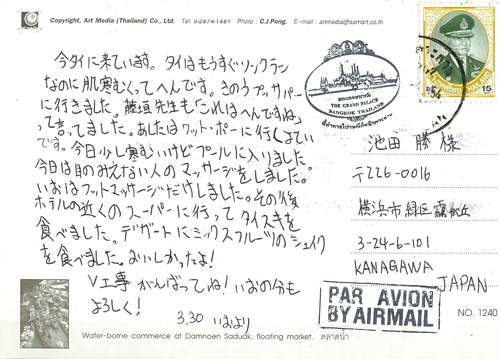 Copyright, Art Media (Thailand) Co., Ltd. Tel. 0-2874-1481 Photo : C.J.Pong. E-mail : artmedia@samart.co.th
今タイに来ています。タイはもうすぐソンクラン
なのに肌寒くってへんです。きのうプッサパー
に行きました。藤垣先生も「これはへんですね」
って言ってました。あしたはワット・ポーに行くよてい
です。今日少し寒むいけどプールに入りました。
今日は目のみえない人のマッサージをしました。
いおはフットマッサージだけしました。その後
ホテルの近くのスーパーに行ってタイスキを
食べました。デザートにミックスフルーツのシェイク
を食べました。おいしかったよ!
V工事がんばってね! いおの分も
よろしく!
3.30 いおより
THE GRAND PALACE
BANGKOK THAILAND
15
池田 勝 様
〒226-0016
横浜市緑区霧が丘
3-24-6-101
KANAGAWA
JAPAN
PAR AVION
BY AIRMAIL
NO. 1240
Water-borne commerce at Damnoen Saduak, floating market. ตลาดน้ำ